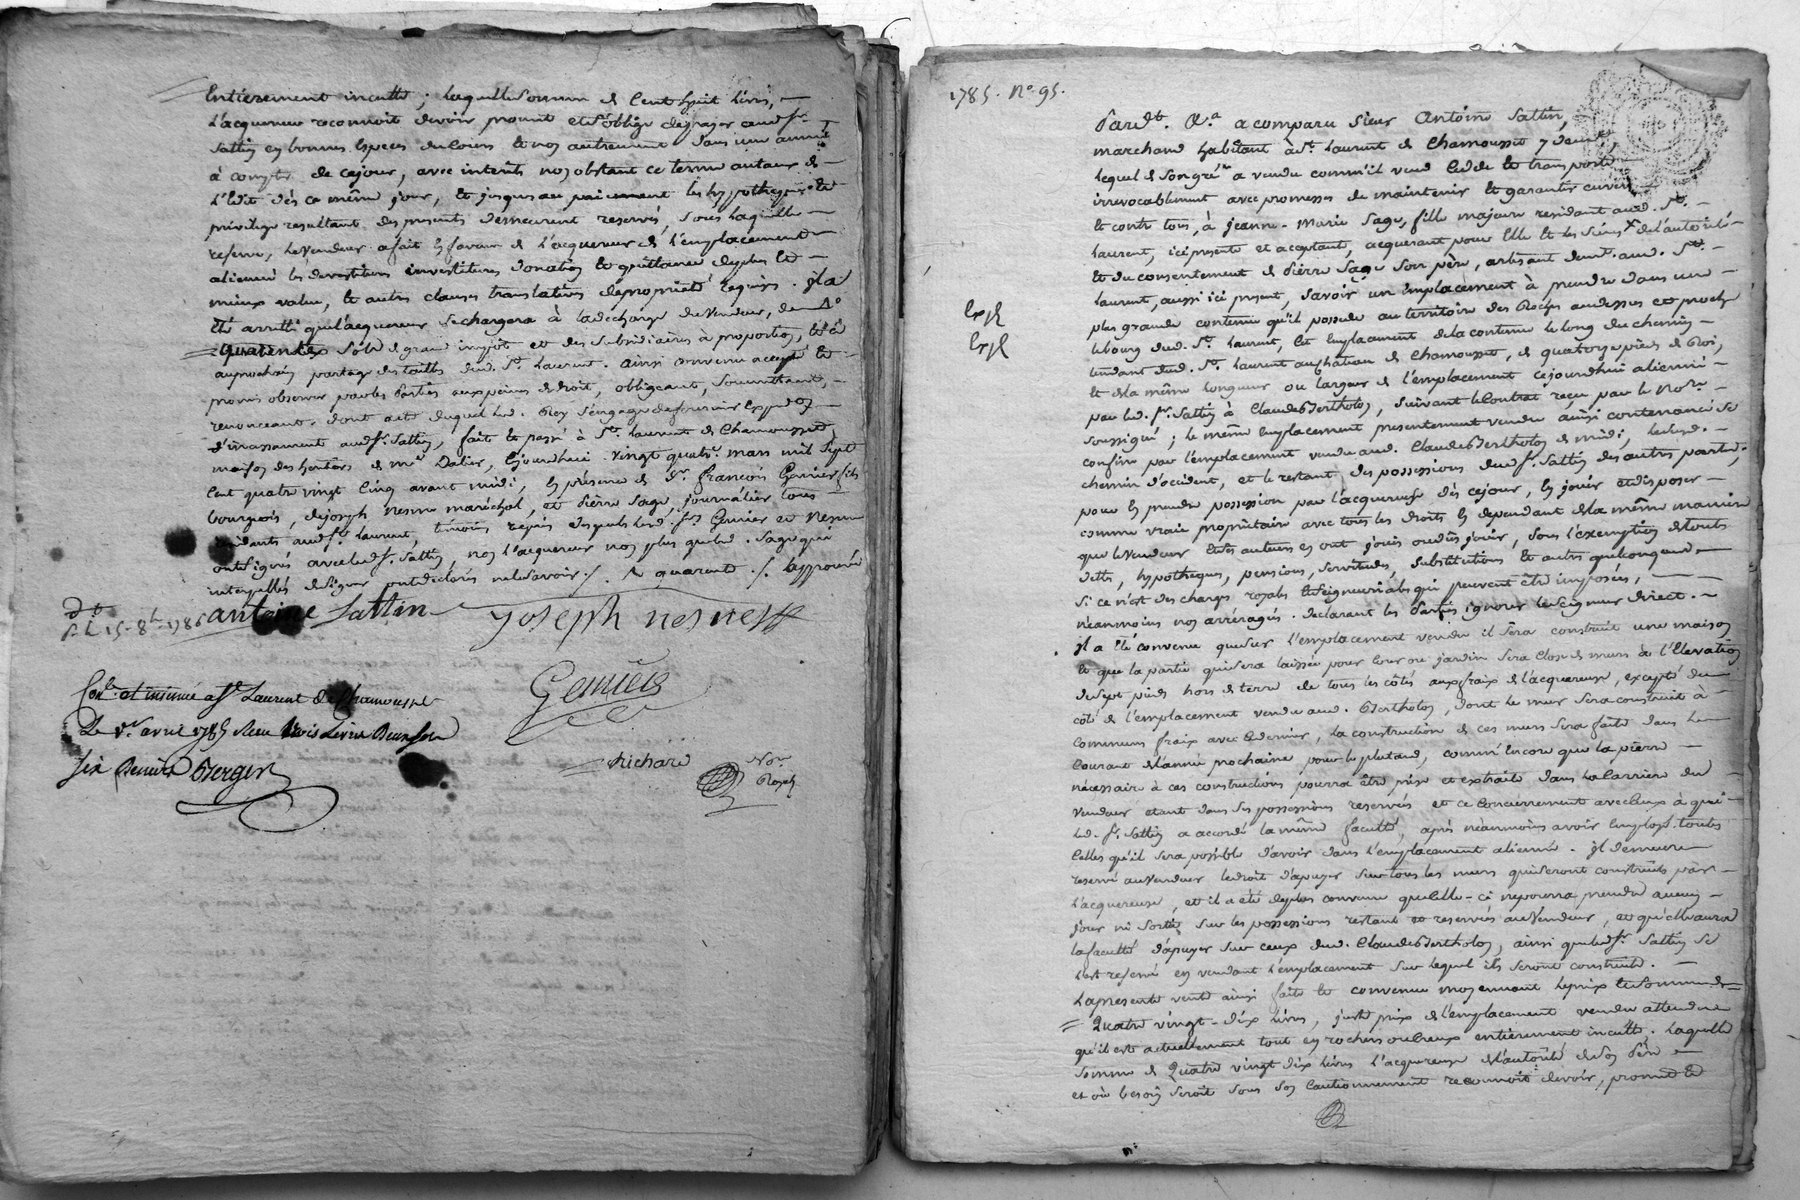 Entierement inculte; laquelle somme de Cent huit Livres,
L'acquereur reconnoit devoir promet et s'oblige de payer aud. Sr.
Sattin en bonnes Especes du Cours et non autrement dans une année
à compter de cejour, avec interêts nonobstant ce terme au taux de
L'Edit dès ce même jour, et jusques au paiement les hypotheques et
privilege resultant des presents demeurent reservés, sous laquelle
reserve, le Vendeur a fait en faveur de l'acquereur de l'emplacement
aliené les devestitures investitures donation et quittance de plus et
mieux value, et autres clauses translatives de proprieté requises. Il a
Eté arrêté que l'acquereur se chargera à la decharge du Vendeur, de
Sols de grand impôt et des Subsidiaires à proportion, et ce
au prochain partage des tailles dud. St. Laurent. ainsi convenu accepté et
promis observer par les Parties aux peines de droit, obligeant, soumettant,
renonceant. dont acte duquel led. Rey s'engage de fournir Expedon
d'incessament aud. Sr. Sattin, fait et passé à St. Laurent de Chamousset
maison des heritiers de Me Dalier, Cejourdhui vingt quatre mars mil Sept
Cent quatre vingt Cinq avant midi, En presence de Sr. françois Genier fils
bourgeois, de joseph nesme maréchal, et Pierre Sage, journalier tous
residants aud. St. Laurent, temoins requis desquels led. Srs Genier et Nesme
ont signés avec led. Sr. Sattin, non l'acquereur non plus que led. Sage qui
interpellés de signer ont declarés ne le savoir ./. quarente ./. approuvé
antoine Sattin joseph nesme
15. 8bre 1786
Genier
Conlé. et insinué a St Laurent de Chamousset
Le 1er avril 1785 Recu trois Livres Deux sols
six Deniers Berger
Richard
Nore.
Royal
1785. No. 95.
Pardt. &a a comparu Sieur Antoine Sattin,
marchand habitant à St. Laurent de Chamousset y demt,
lequel de Son gré a vendu comm'il vend Cede et transporte
irrevocablement avec promesses de maintenir et garantir envers
et contre tous, à Jeanne-Marie Sage, fille majeure residant aud. St.
Laurent, ici presente et acceptant, acquerant pour Elle et les Siens de l'autorité
et du consentement de Pierre Sage Son père, artisant demt. aud. St.
Laurent, aussi ici present, savoir un emplacement à prendre dans un
plus grande contenue qu'il possede au territoire des Roches audessus et proche
le bourg dud. St. Laurent, Cet Emplacement de la contenue le long du chemin
tendant dud. St. Laurent au château de Chamousset, de quatorze pieds de Roi,
et de la même longueur ou largeur de l'emplacement cejourdhui aliené
par led. Sr. Sattin à Claude Bertholon, suivant le Contrat reçu par le Nore.
soussigné; le même Emplacement presentement vendu ainsi contenancé se
confine par l'emplacement vendu aud. Claude Bertholon de midi, led.
chemin d'occident, et le restant des possessions dud. Sr. Sattin des autres parties;
pour en prendre possession par l'acquereuse dès cejour, En jouir et disposer
comme vraie propriétaire avec tous les droits En dependant de la même maniere
que le Vendeur et Ses auteurs En ont jouis ou dû jouir, sous l'exemption de touts
dettes, hypotheques, pensions, servitudes, substitutions et autres quelconques
si ce n'est des charges royales et seigneuriales qui peuvent être imposées,
néanmoins non arréragés. declarant les Parties ignorer le Seigneur direct.
Il a Eté convenu que sur l'emplacement vendu il sera construit une maison
et que la partie qui sera laissée pour Cour ou jardin sera close de murs à l'Elevation
de sept pieds hors de terre de tous les côtés aux fraix de l'acquereuse, excepté du
côté de l'emplacement vendu aud. Bertholon, dont le mur sera construit à
communs fraix avec Ce dernier, la construction de ces murs sera faite dans le
Courant de l'année prochaine pour le plutard, comm'Encore que la pierre
nécessaire à ces constructions pourra être prise et extraite dans la Carriere du
Vendeur etant dans ses possessions reservées et ce Concurrement avec Ceux à qui
led. Sr. Sattin a accordé la même faculté, après néanmoins avoir Employé toutes
Celles qu'il sera possible d'avoir dans l'emplacement aliené. Il demeure
reservé au Vendeur le droit d'apuyer sur tous les murs qui seront construits par
L'acquereuse, et il a eté de plus convenu que Celle-ci ne pourra prendre aucun
jour ni sortie sur les possessions restant et reservées au Vendeur, et qu'elle aura
la faculté d'apuyer sur ceux dud. Claude Bertholon, ainsi que led. Sr. Sattin se
L'est reservé en vendant l'emplacement sur lequel ils seront construits.
La presente vente ainsi faite et convenue moyennant le prix et Somme de
Quatre vingt-dix Livres, juste prix de l'emplacement vendu attendu
qu'il est actuellement tout en rochers ou broux entièrement inculte. Laquelle
Somme de Quatre vingt dix Livres L'acquereuse de l'autorité de son Père
et où besoin seroit sous son Cautionnement reconnoit devoir, promet et